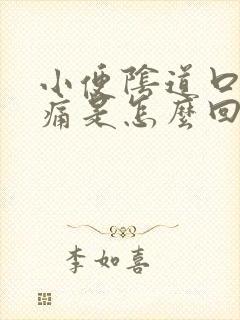 小便陰道口
痛是怎麼回
李如喜